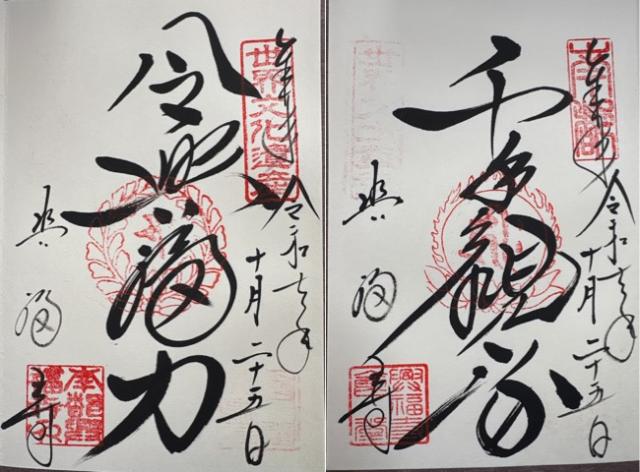 奉拝
令和七年
十月二十五日
千手観音
興福寺
世界文化遺産
奉拝
令和七年
十月二十五日
令興福力
興福寺